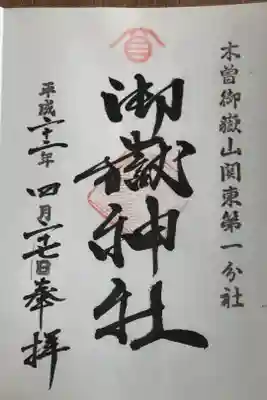 木曽御嶽山関東第一分社
御嶽神社
平成二十二年四月二十七日奉拝